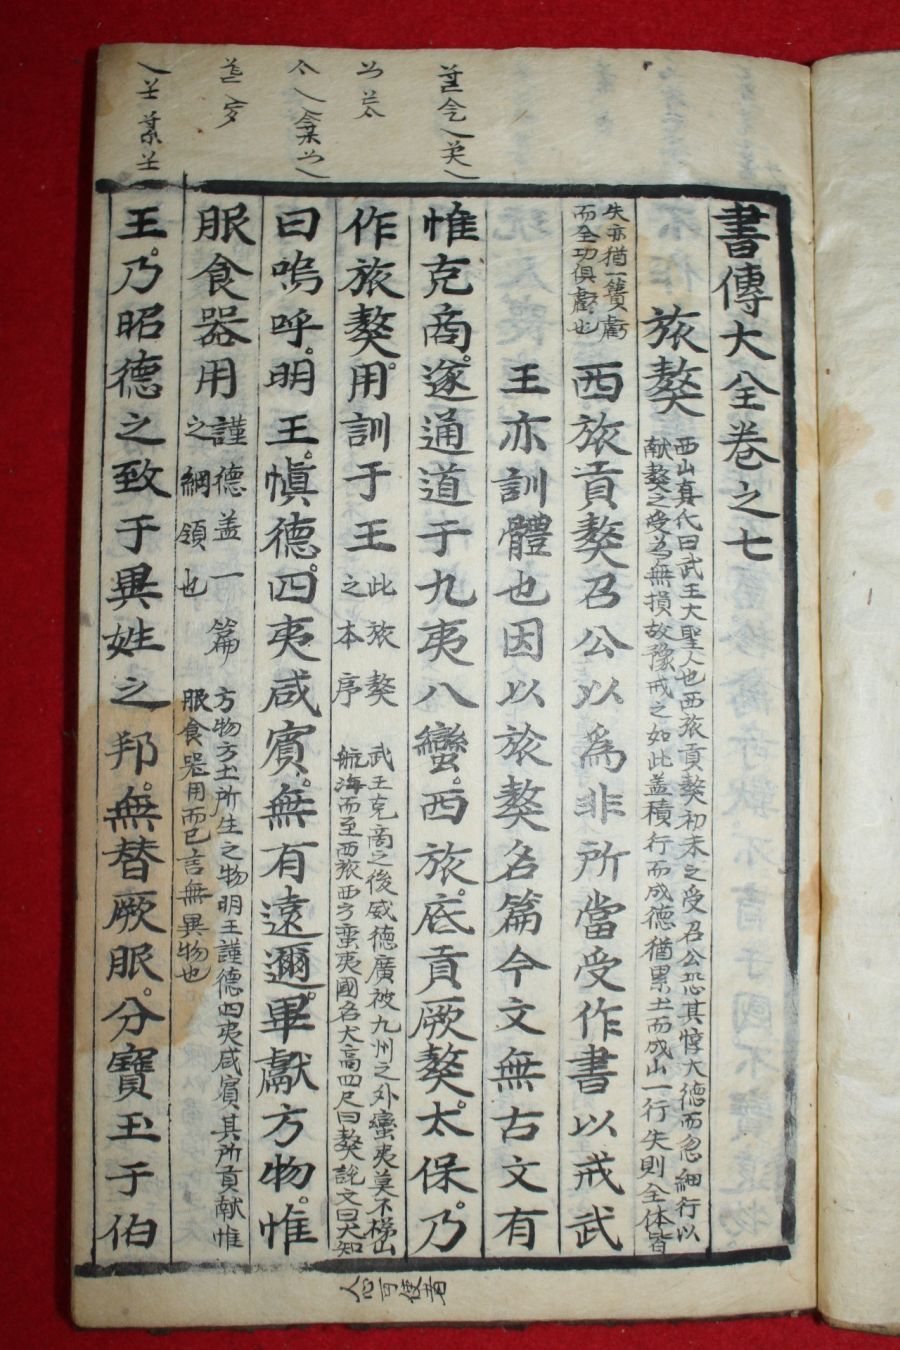 書傳大全卷之七
旅獒
西山真代曰武王大聖人也西旅貢獒初未之受召公恐其悖大德而忽細行以
献獒之受為無損故豫戒之如此盖積行而成德猶累土而成山一行失則全体皆
失亦猶一簣虧
而全功俱虧也
西旅貢獒召公以爲非所當受作書以戒武
王亦訓體也因以旅獒名篇今文無古文有
惟克商遂通道于九夷八蠻西旅底貢厥獒太保乃
作旅獒用訓于王
此旅獒
之本序
武王克商之後威德廣被九州之外蠻夷莫不梯山
航海而至西旅西方蛮夷國名犬高四尺曰獒說文曰犬知
人心可使者
曰嗚呼明王愼德四夷咸賓無有遠邇畢獻方物惟
服食器用
謹德盖一篇
之綱領也
方物方土所生之物明王謹德四夷咸賓其所貢献惟
服食器用而已言無異物也
王乃昭德之致于異姓之邦無替厥服分寶玉于伯